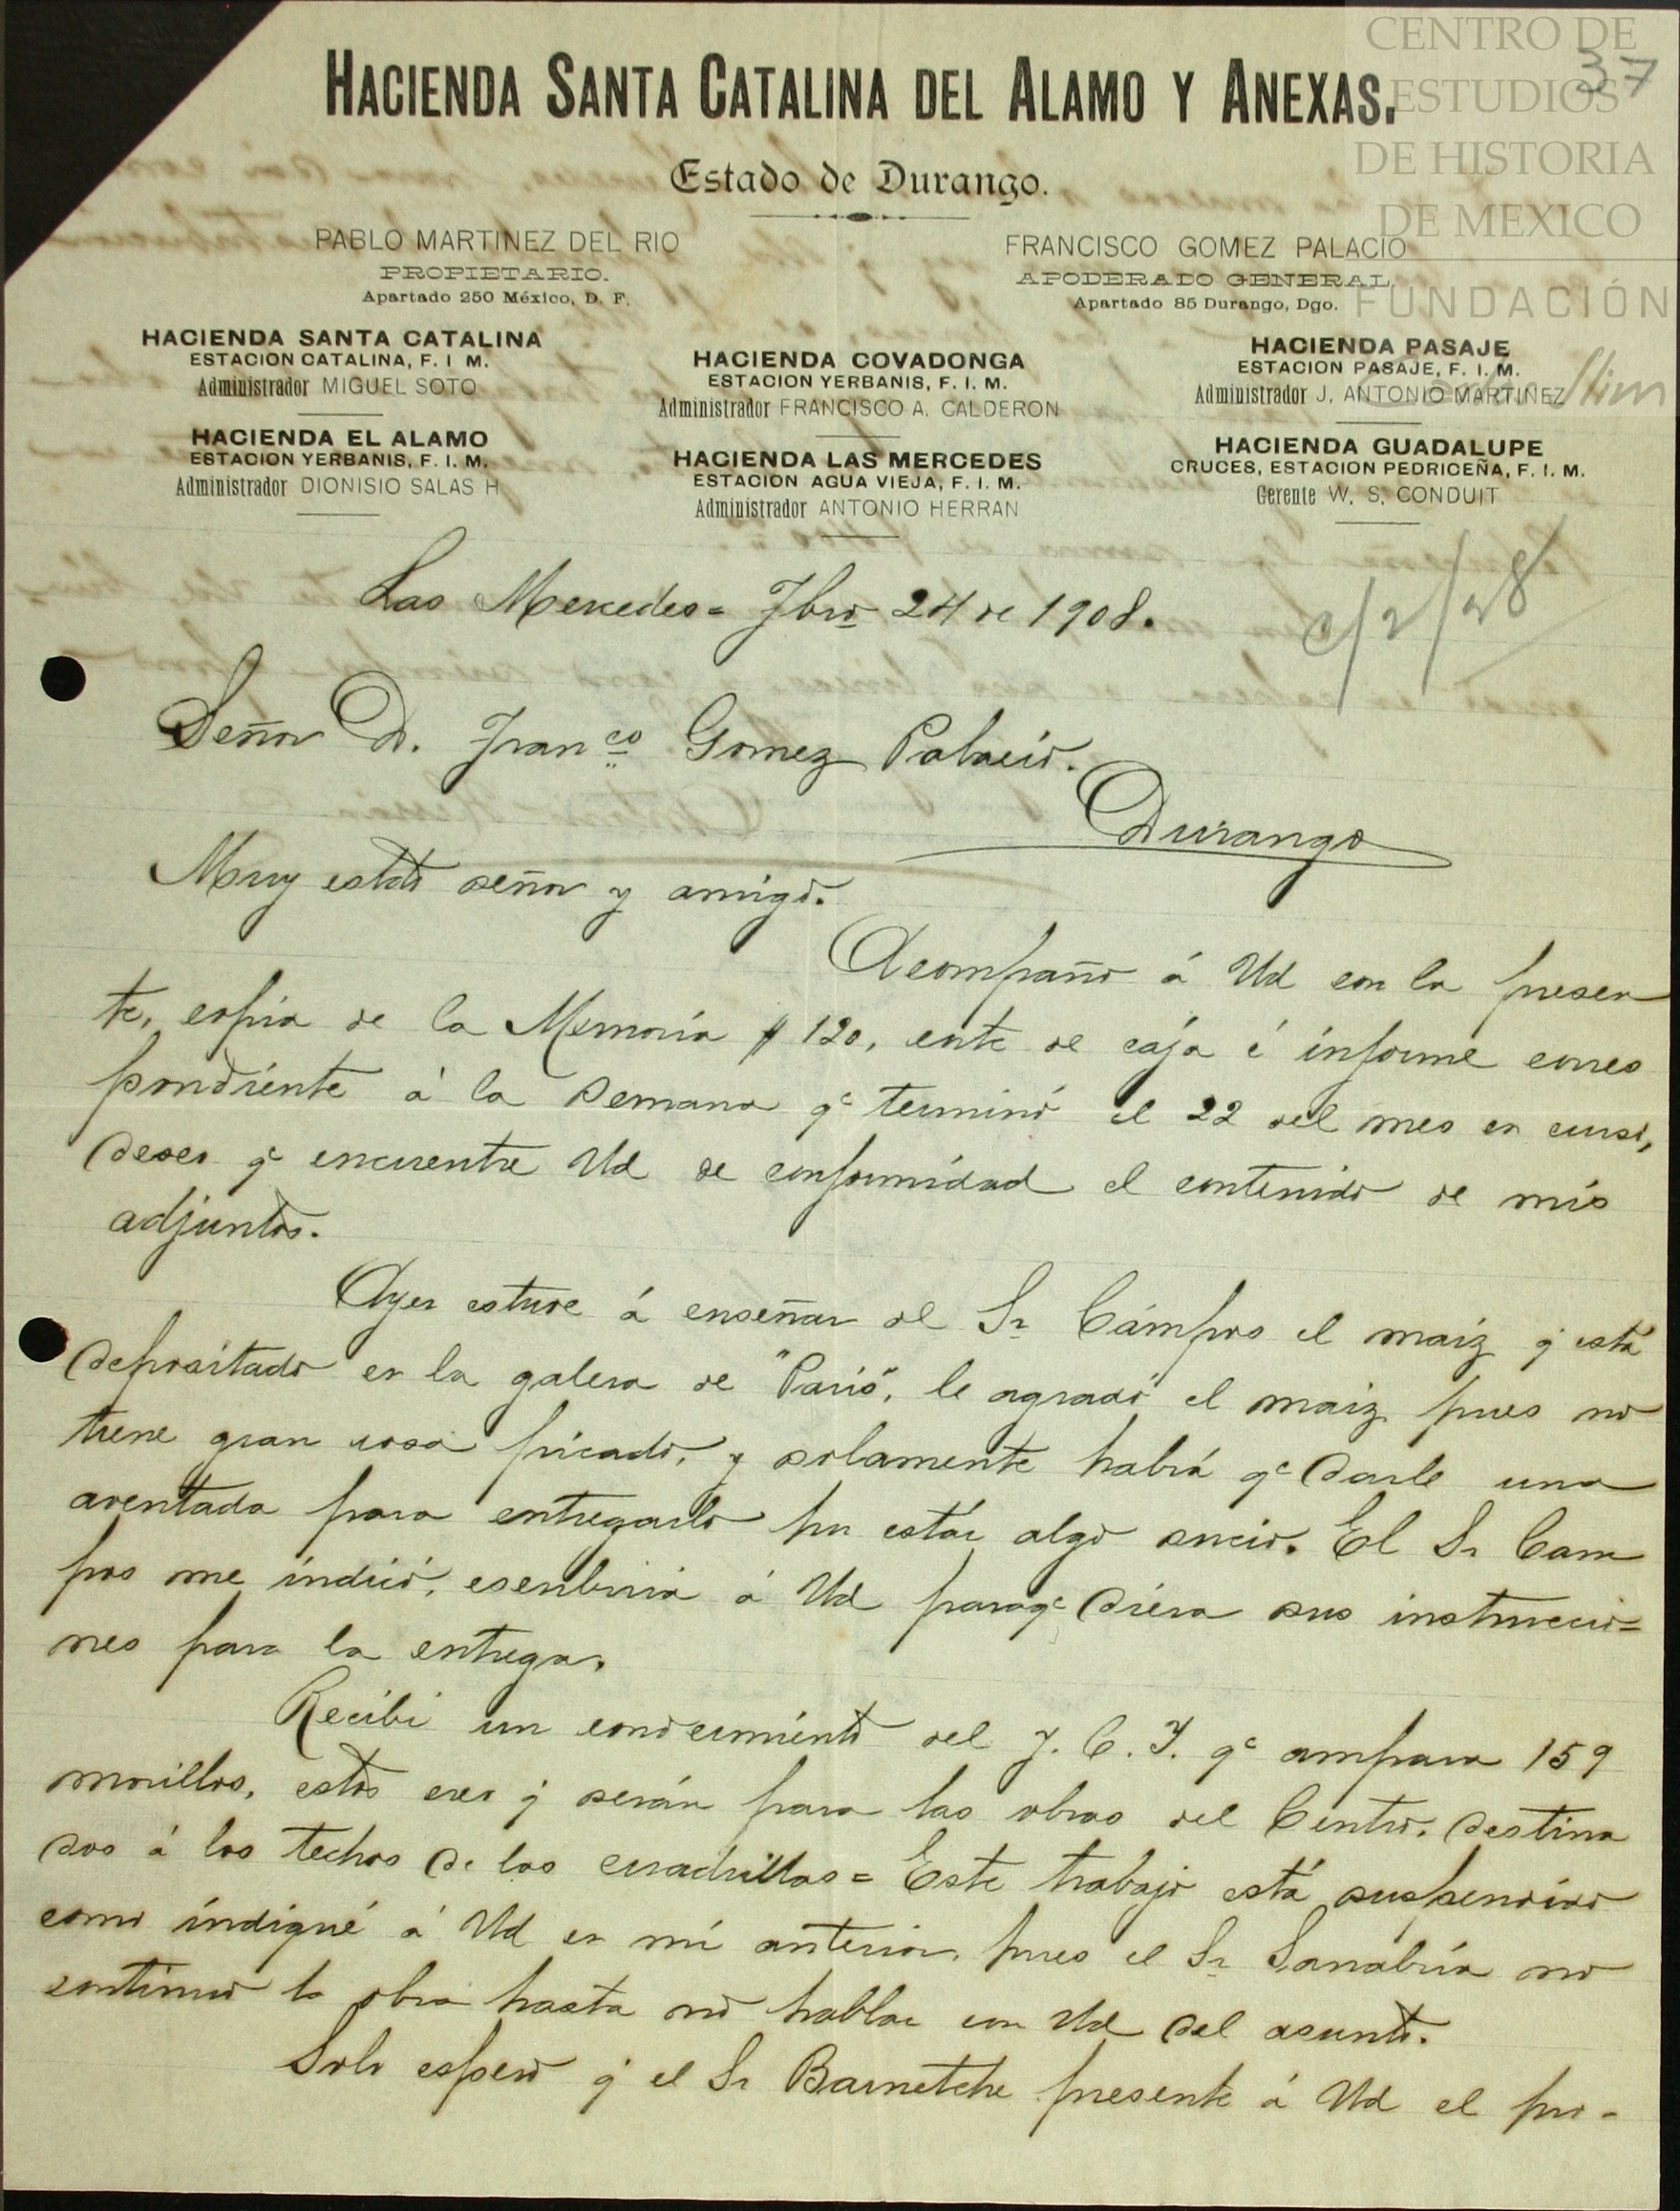 CENTRO DE
ESTUDIOS
DE HISTORIA
DE MEXICO
FUNDACIÓN
Carlos Slim
37
HACIENDA SANTA CATALINA DEL ALAMO Y ANEXAS.
Estado de Durango.
PABLO MARTINEZ DEL RIO
PROPIETARIO.
Apartado 250 México, D. F.
FRANCISCO GOMEZ PALACIO
APODERADO GENERAL
Apartado 85 Durango, Dgo.
HACIENDA SANTA CATALINA
ESTACION CATALINA, F. I M.
Administrador MIGUEL SOTO
HACIENDA EL ALAMO
ESTACION YERBANIS, F. I. M.
Administrador DIONISIO SALAS H
HACIENDA COVADONGA
ESTACION YERBANIS, F. I. M.
Administrador FRANCISCO A. CALDERON
HACIENDA LAS MERCEDES
ESTACION AGUA VIEJA, F. I. M.
Administrador ANTONIO HERRAN
HACIENDA PASAJE
ESTACION PASAJE, F. I. M.
Administrador J. ANTONIO MARTINEZ
HACIENDA GUADALUPE
CRUCES, ESTACION PEDRICEÑA, F. I. M.
Gerente W. S. CONDUIT
Las Mercedes= 7bre 24 de 1908.
Señor D. Franco Gomez Palacio.
Durango
Muy estdo señor y amigo.
Acompaño á Ud con la presen
te, copia de la Memoria # 120, corte de caja é informe corres
pondiente á la semana qe terminó el 22 del mes en curso,
deseo qe encuentre Ud de conformidad el contenido de mis
adjuntos.
Ayer estuve á enseñar al Sr Cámpos el maiz q está
depositado en la galera de "Paris", le agradó el maiz pues no
tiene gran cosa picado, y solamente habrá qe darle una
aventada para entregarlo por estár algo sucio. El Sr Cam
pos me indicó, escribiria á Ud paraqe diera sus instruccio=
nes para la entrega.
Recibi un conocimiento del F. C. I. qe ampara 159
morillos, estos creo q serán para las obras del Centro, destina
dos á los techos de las cuadrillas= Este trabajo está suspendido
como indiqué á Ud en mi anterior, pues el Sr Sanabria no
continuó la obra hasta no hablar con Ud del asunto.
Solo espero q el Sr Barnetche presente á Ud el pro-